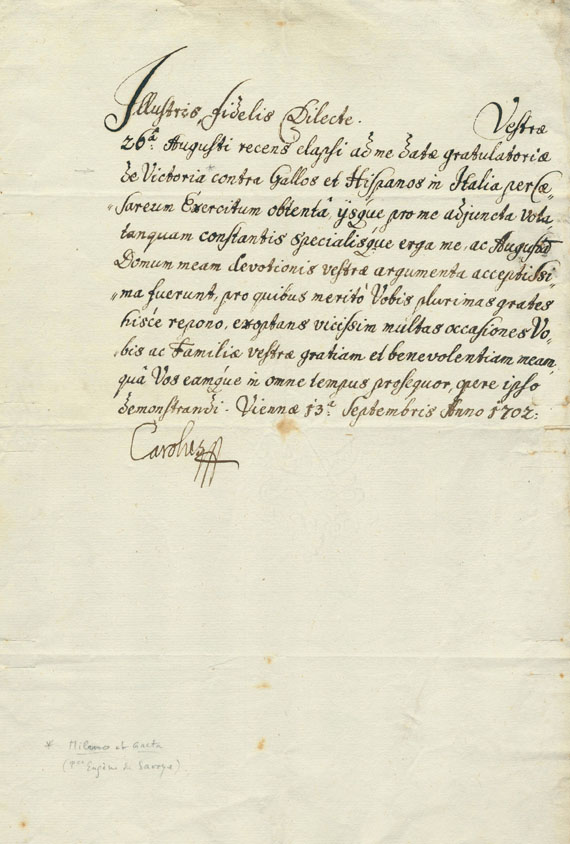 Illustris, fidelis Dilecte. Vestræ
26ᵃ: Augusti recens elapsi ad me datæ gratulatoriæ
de Victoria contra Gallos et Hispanos in Italia per Cæ„
„sareum Exercitum obtentâ, ijsq́ue pro me adjuncta Vota
tanquam constantis specialisq́ue erga me, ac Augustā
Domum meam devotionis vestræ argumenta acceptissi„
„ma fuerunt, pro quibus meritò Vobis plurimas grates
hisce repono, exoptans vicissim multas occasiones Vo„
„bis ac Familiæ vestræ gratiam et benevolentiam meam,
quâ Vos eamq́ue in omne tempus prosequor, opere ipso
demonstrandi. Viennæ 13ᵃ Septembris Anno 1702:
Carolus
* Milano et Gaeta
(Pce Eugène de Savoye)